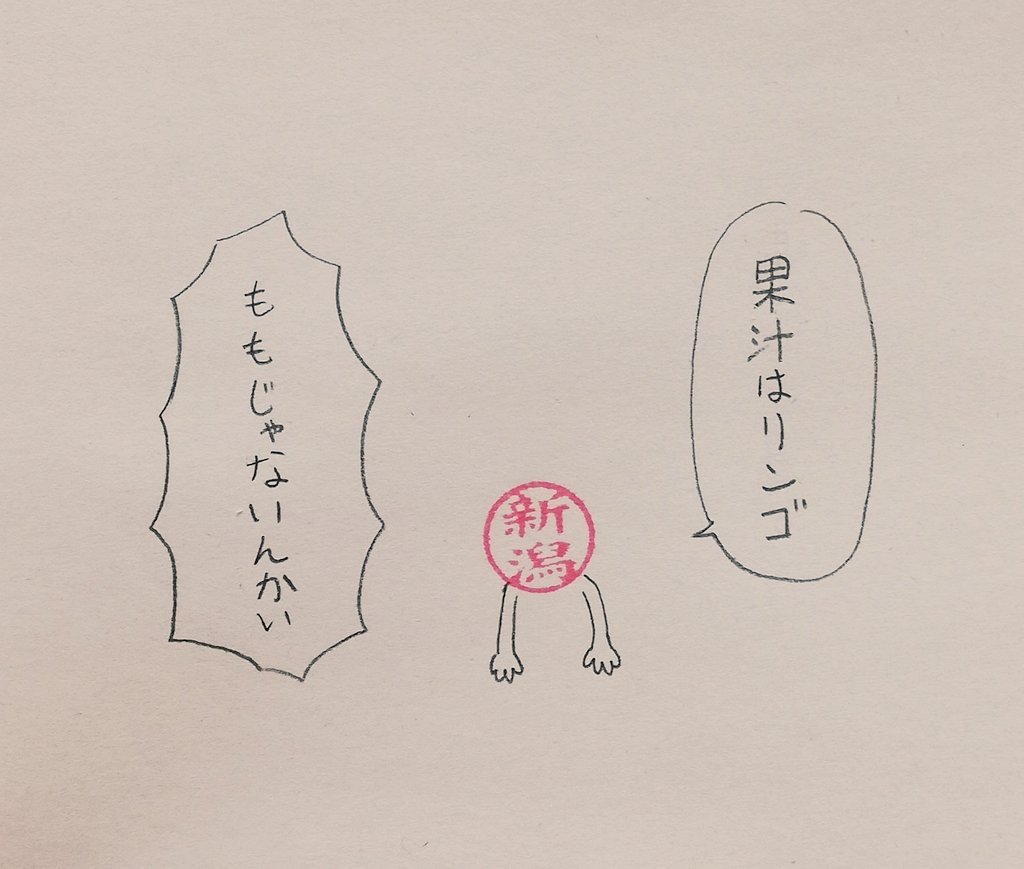 果汁はリンゴ
新潟
ももじゃないんかい